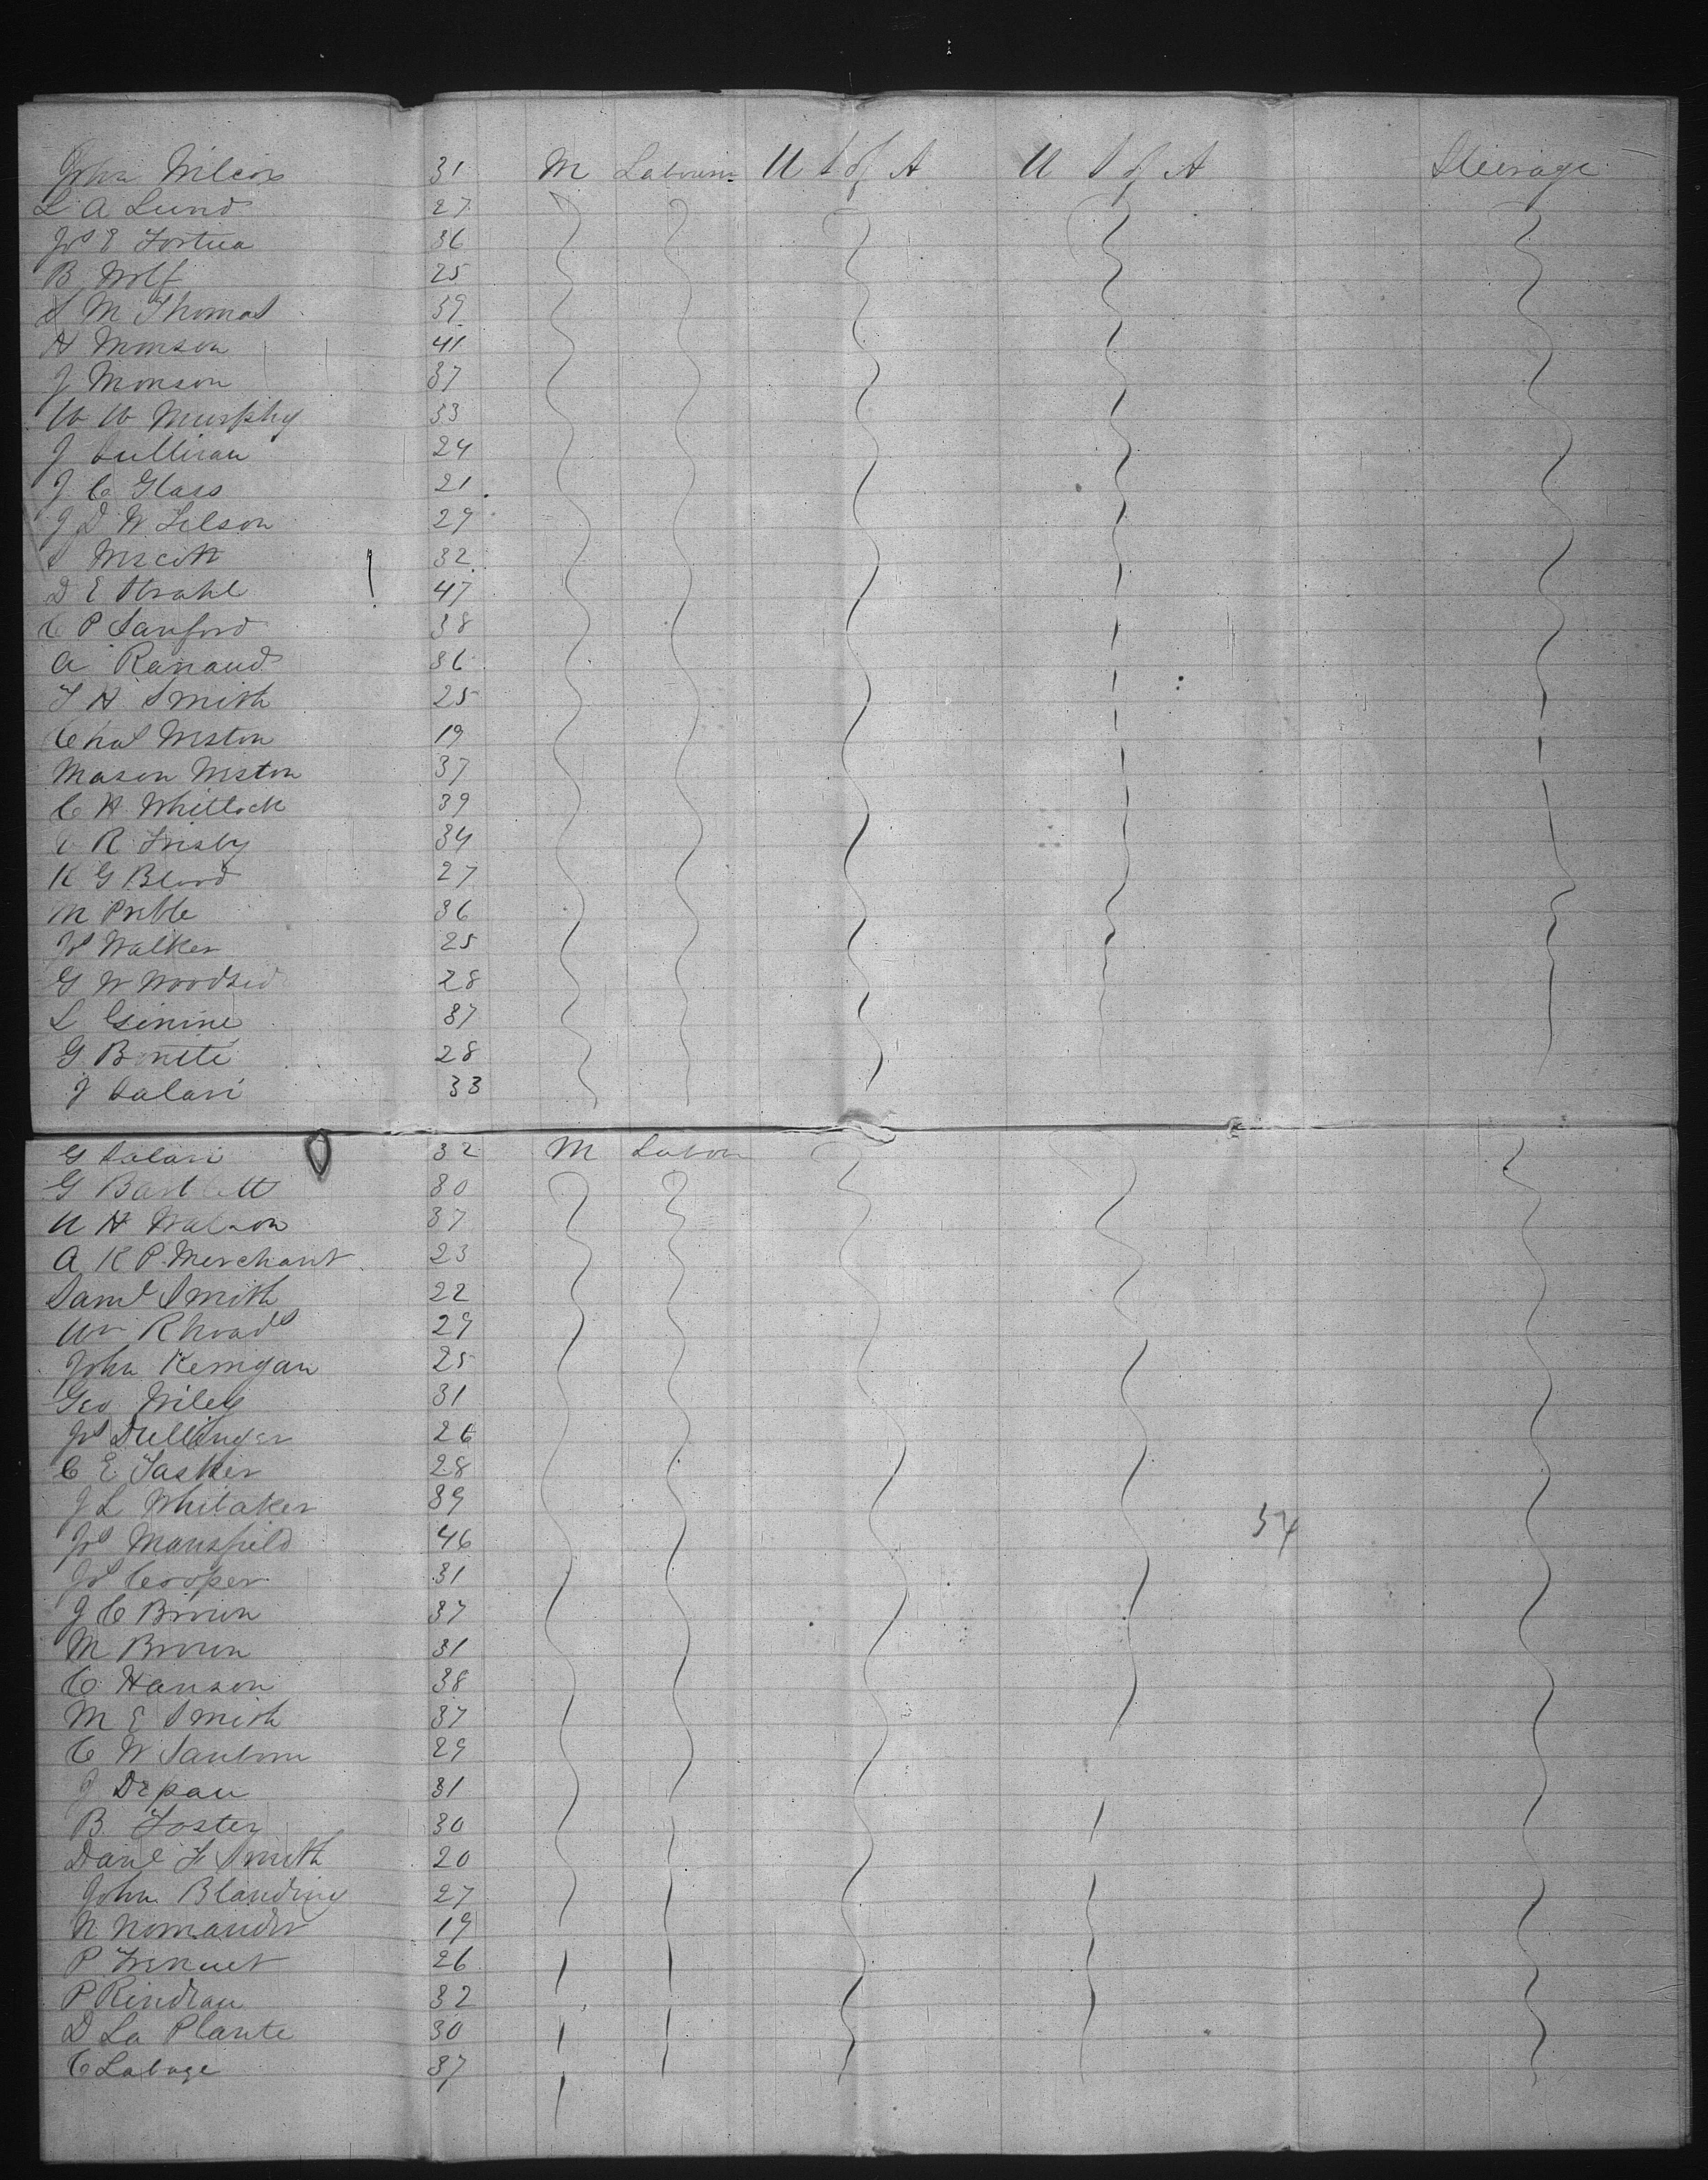 John Wilcox 31 M Labourer U S of A U S of A Steerage
L A Lund 27
Jos E Fortua 36
B Wolf 25
S M Thomas 39
H Monson 41
J Monson 37
W W Murphy 33
J Sullivan 24
J C Glass 21
J D W Lilson 29
S Wescott 32
D E Strahl 47
C P Sanford 38
A Ranaud 36
F H Smith 25
Chas Weston 19
Mason Weston 37
C H Whitlock 39
R Frisby 34
K G Blood 27
M Preble 36
Js Walker 25
G W Woodsid 28
L Genine 37
G Bonete 28
J Salari 33
G Salari 32 M Labor
G Bartlett 30
U H Watson 37
A K P Merchant 23
Saml Smith 22
Wm Rhoads 29
John Kerrigan 25
Geo Wiley 31
Js Dullinger 26
C E Tasker 28
J L Whitaker 39
Js Mansfield 46
Js Cooper 31
J C Brown 37
M Brown 31
C Hanson 38
M E Smith 37
C W Sanborn 29
J Depau 31
B Foster 30
Danl F Smith 20
John Blanding 27
N Nomander 19
P Frenuet 26
P Rindeau 32
D La Plante 30
C Labage 37
54